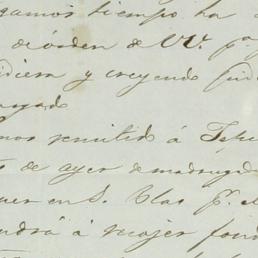 gamos tiempo ha
de órden de VV. pª
diera y creyendo
sado
mos remitido á Tepi
de ayer de madrugad
en S. Blas pr el
endrá á mejor fond